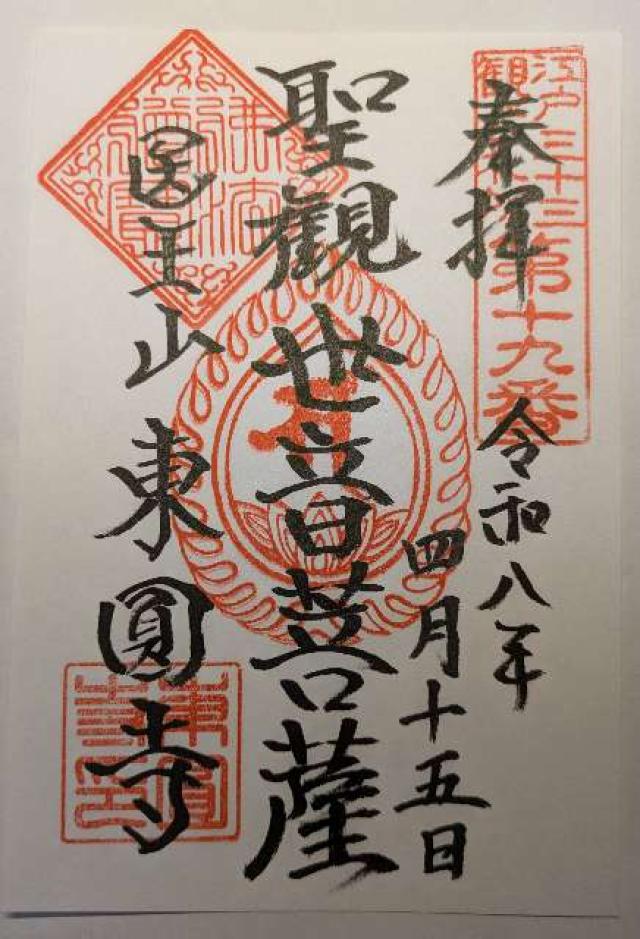 江戸三十三
観
第十九番
奉拝
令和八年
四月十五日
聖観世音菩薩
佛法僧寶
王山 東圓寺
東圓寺印